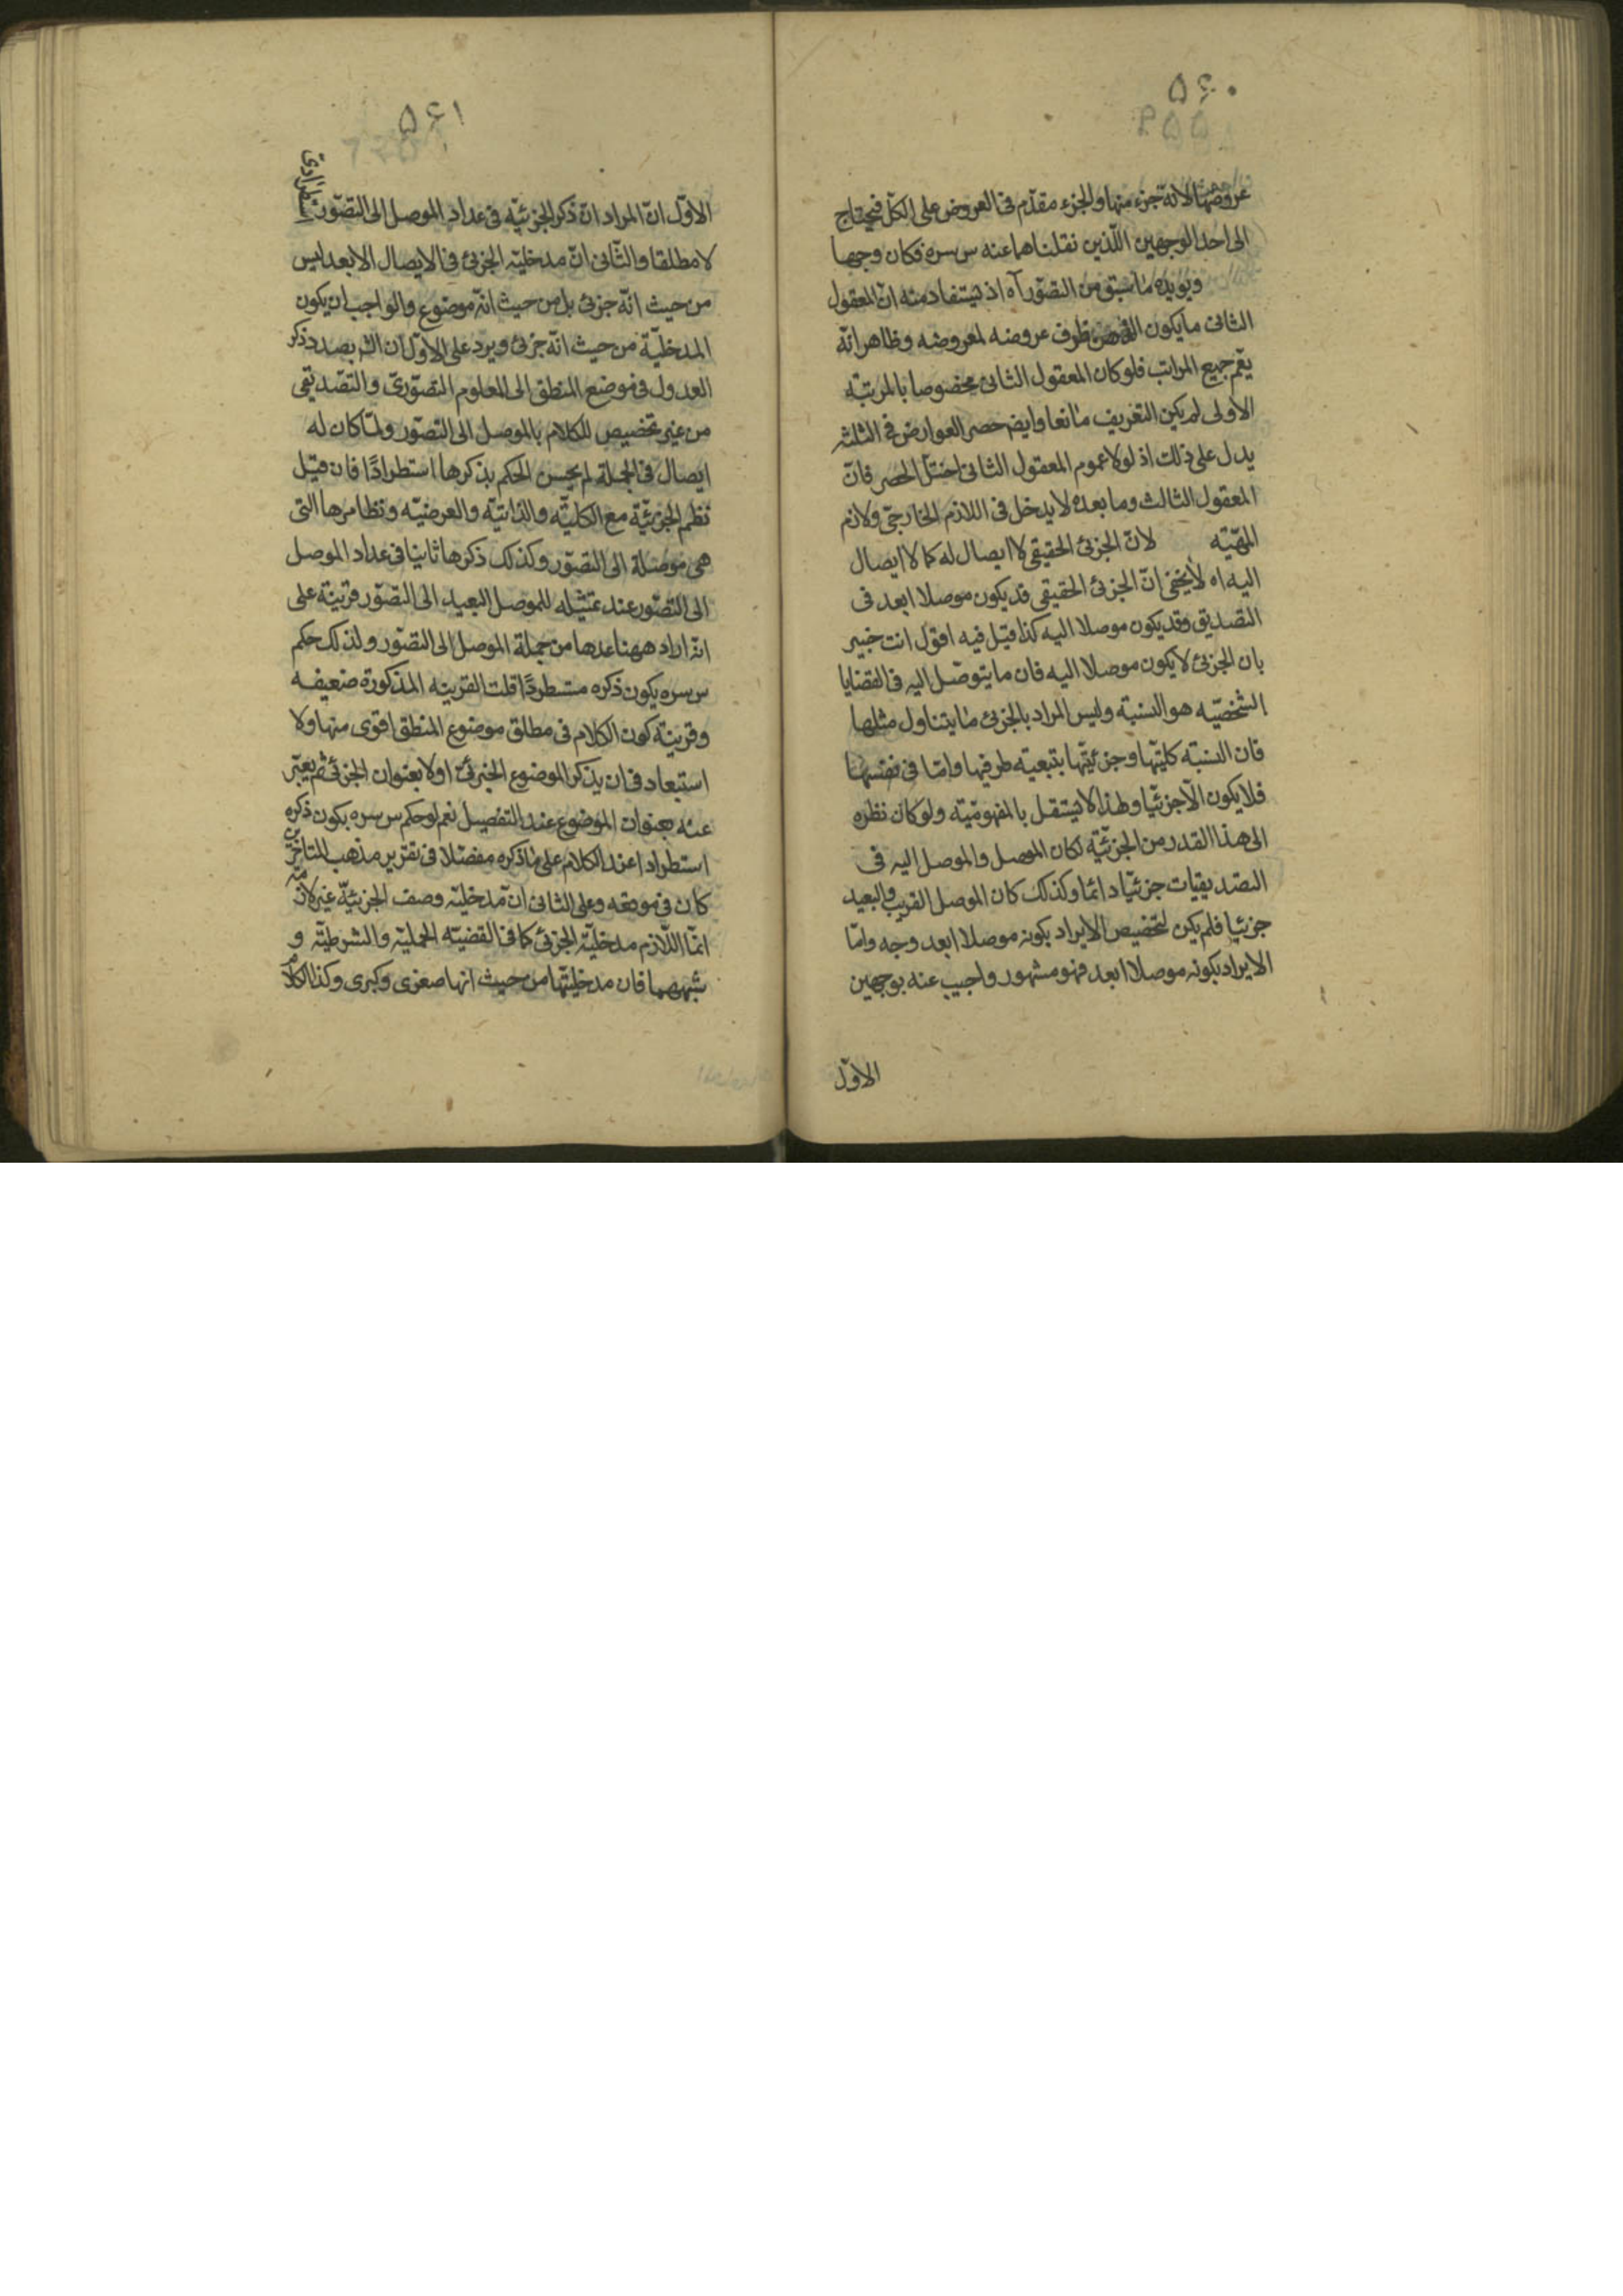 ۵۶۰
عروضها لانه جزء منها والجزء مقدّم فى العروض على الكلّ فيحتاج
الى احد الوجهين اللّذين نقلناهما عنه س سره فكان وجها
ويؤيده ما سبق من التصوّر آه اذ يستفاد منه انّ المعقول
الثانى ما يكون ظرف عروضه لمعروضه وظاهر انّه
يعمّ جميع المراتب فلو كان المعقول الثانى مخصوصا بالمرتبة
الاولى لم يكن التعريف مانعا وايضا حصر العوارض فى الثلثة
يدل على ذلك اذ لولا عموم المعقول الثانى اختلّ الحصر فانّ
المعقول الثالث وما بعده لا يدخل فى اللازم الخارجىّ ولازم
المهيّة لانّ الجزئ الحقيقى لا ايصال له كما لا ايصال
اليه اه لا يخفى انّ الجزئ الحقيقى قد يكون موصلا ابعد فى
التصديق وقد يكون موصلا اليه كذا قيل فيه اقول انت خبير
بان الجزئ لا يكون موصلا اليه فان ما يتوصّل اليه فى القضايا
الشخصيّه هو النسبة وليس المراد بالجزئ ما يتناول مثلها
فان النسبة كليّتها وجزئيّتها بتبعية طرفيها وامّا فى نفسها
فلا يكون الّا جزئيّا ولهذا لا يستقل بالمفهوميّة ولو كان نظره
الى هذا القدر من الجزئيّة لكان الموصل والموصل اليه فى
التصديقيات جزئيّا دائما وكذلك كان الموصل القريب والبعيد
جزئيا فلم يكن لتخصيص الايراد بكونه موصلا ابعد وجه وامّا
الايراد بكونه موصلا ابعد فهو مشهور واجيب عنه بوجهين
الاوّل
۵۶۱
الاوّل انّ المراد انّ ذكر الجزئيّه فى عداد الموصل الى التصوّر استطرادىّ
لا مطلقا والثّانى انّ مدخليّة الجزئ فى الايصال الابعد ليس
من حيث انّه جزئ بل من حيث انّه موضوع والواجب ان يكون
المدخليّة من حيث انّه جزئ ويرد على الاوّل ان الش بصدد ذكر
العدول فى موضع المنطق الى المعلوم التصوّرىّ والتصديقى
من غير تخصيص للكلام بالموصل الى التصوّر ولمّا كان له
ايصال فى الجملة لم يحسن الحكم بذكرها استطرادًا فان قيل
نظم الجزئيّة مع الكليّة والذاتيّه والعرضيّه ونظايرها التى
هى موصلة الى التصوّر وكذلك ذكرها ثانيا فى عداد الموصل
الى التصوّر عند تمثيله للموصل البعيد الى التصوّر قرينة على
انّه اراد ههنا عدها من جملة الموصل الى التصوّر ولذلك حكم
س سره بكون ذكره مستطردًا قلت القرينه المذكورة ضعيفه
وقرينة كون الكلام فى مطلق موضوع المنطق اقوى منها ولا
استبعاد فى ان يذكر الموضوع الجزئىّ اولا بعنوان الجزئىّ ثم يعبّر
عنه بعنوان الموضوع عند التفصيل نعم لو حكم س سره بكون ذكره
استطرادا عند الكلام على ما ذكره مفصّلا فى تقرير مذهب المتاخرين
كان فى موقعه وعلى الثانى انّ مدخليّة وصف الجزئيّة غير لازمة
انّما اللّازم مدخليّة الجزئ كما فى القضيّة الحمليّة والشرطيّة و
شبههما فان مدخليّتها من حيث انها صغرى وكبرى وكذا الكلام